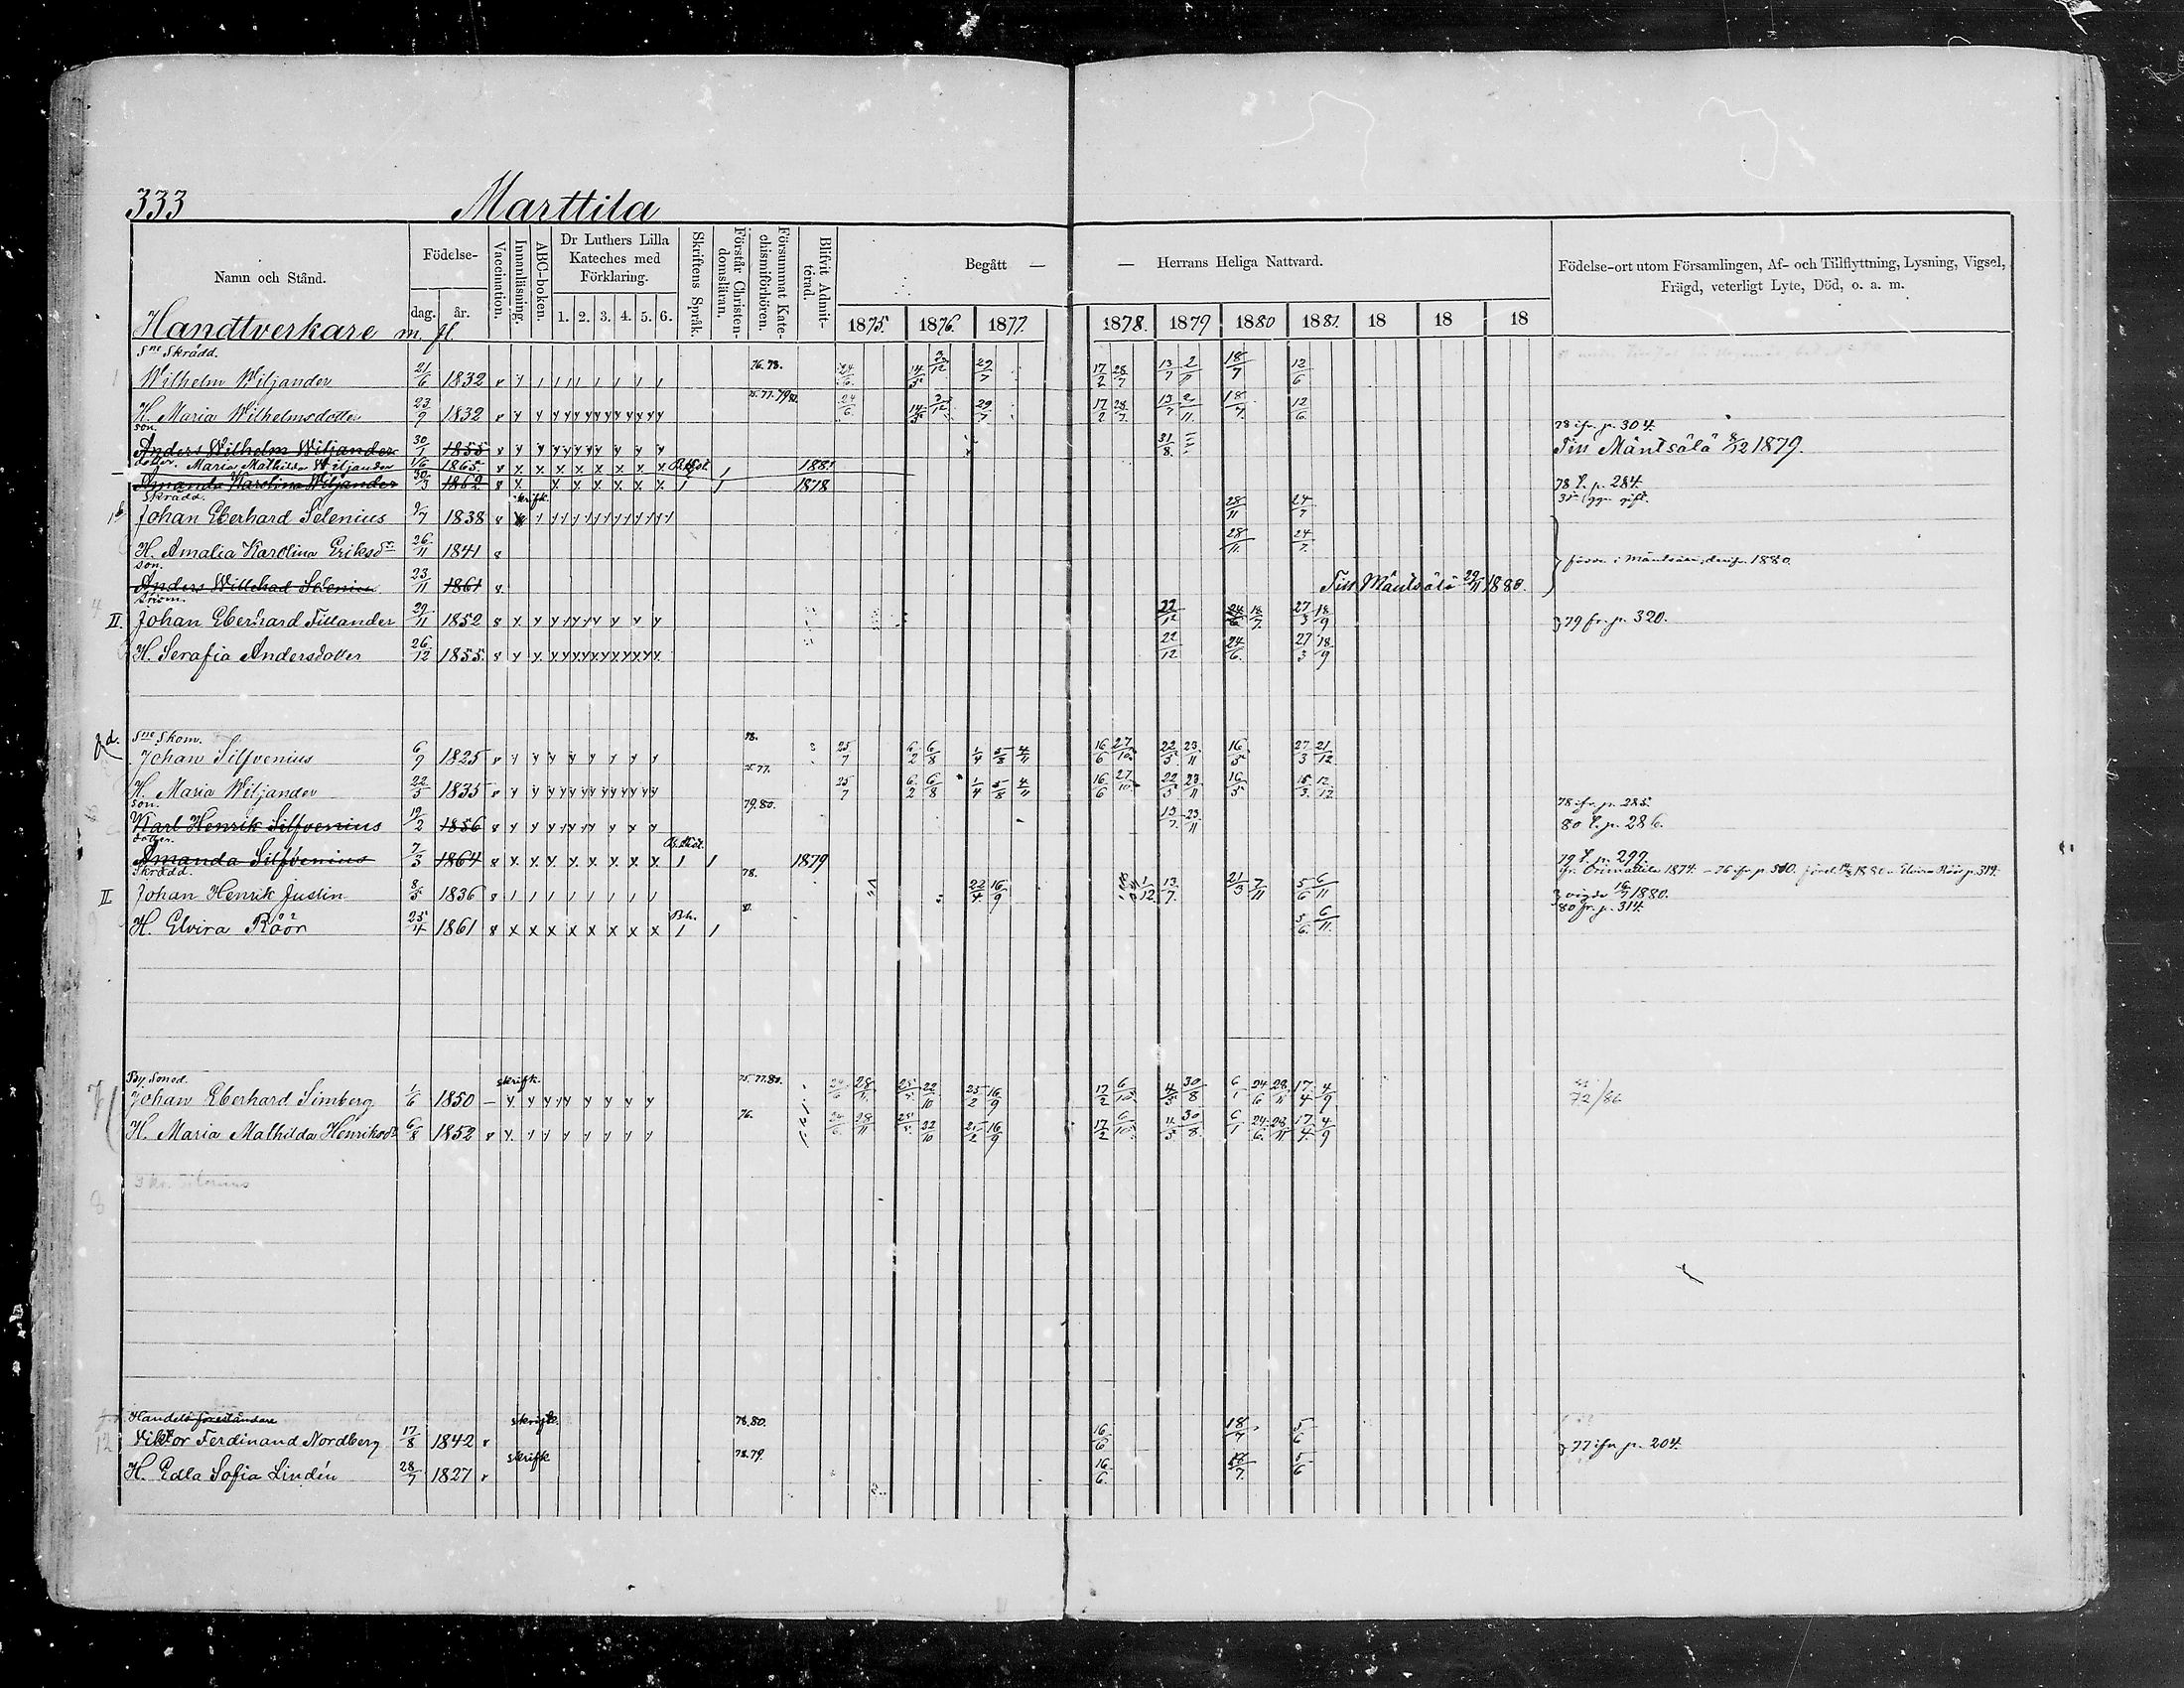 333 Marttila
Namn och Stånd. Födelse- dag. år. Vaccination. Innanläsning. ABC-boken. Dr Luthers Lilla Kateches med Förklaring. 1. 2. 3. 4. 5. 6. Skriftens Språk. Förstår Christendomsläran. Försummat Katechismiförhören. Blifvit Admitterad. Begått — — Herrans Heliga Nattvard. Födelse-ort utom Församlingen, Af- och Tillflyttning, Lysning, Vigsel, Frägd, veterligt Lyte, Död, o. a. m.
Handtverkare m. fl. 1875. 1876. 1877. 1878. 1879 1880 1881. 18 18 18
Sne Skrädd. 76. 78.
Wilhelm Wiljander 21/6 1832 24/6 14/5 3/12 29/7 17/2 28/7 13/7 2/11 18/7 12/6
H. Maria Wilhelmsdotter 23/9 1832 24/6 14/5 3/12 29/7 17/2 28/7 13/7 2/11 18/7 12/6
son. 78 ifr. p. 304.
Anders Wilhelm Wiljander 30/1 1855 31/8 Tiss Mäntsälä 8/12 1879.
dotter. Maria Mathilda Wiljander 1/6 1865. 1881
Amanda Karolina Wiljander 30/3 1862 1878 78 t. p. 284.
Skrädd. skrifk. gift.
1b Johan Eberhard Selenius 9/7 1838 28/11 24/7
H. Amalia Karolina Eriksdr 26/11 1841 28/11 24/7
son. 1880.
Anders Willehad Selenius 23/11 1861 Tiss Mäntsälä 29/11 1880.
II. Johan Eberhard Tillander 29/11 1852 22/12 24/6 18/7 27/3 18/9 79 fr. p. 320.
H. Serafia Andersdotter 26/12 1855. 22/12 24/6 27/3 18/9
Sne Skom. 78.
Johan Silfvenius 6/9 1825 25/7 6/2 6/8 1/4 5/8 4/11 16/6 27/10 22/5 23/11 16/5 27/3 21/12
75. 77.
H. Maria Wiljander 22/3 1835 25/7 6/2 6/8 1/4 5/8 4/11 16/6 27/10 22/5 23/11 16/5 15/3 12/12
son. 79. 80. 78 ifr. p. 285.
Karl Henrik Silfvenius 19/2 1856 13/7 23/11 80 t. p. 286.
dotter.
Amanda Silfvenius 7/3 1864 1879 79 t. p. 299.
Skrädd. 78. fr. Orimattila 1874. 76 ifr. p. 310. Elvira Röör p. 314.
II Johan Henrik Justin 8/5 1836 22/4 16/9 1/12 13/7 21/3 7/11 5/6 6/11 vigde 16/7 1880.
B.h. 80 fr. p. 314.
H. Elvira Röör 25/4 1861 5/6 6/11
skrifk. 75. 77. 80.
Johan Eberhard Simberg 1/6 1850 24/6 28/11 25/5 22/10 25/2 16/9 17/2 6/10 4/5 30/8 6/1 24/6 28/11 17/4 4/9 72/86
76.
H. Maria Mathilda Henriksdr 6/8 1852 24/6 28/11 25/5 22/10 25/2 16/9 17/2 6/10 4/5 30/8 6/1 24/6 28/11 17/4 4/9
Handelsföreståndare skrifk. 78. 80.
12 Viktor Ferdinand Nordberg 17/8 1842 16/6 18/7 5/6 77 ifr. p. 204.
skrifk 78. 79.
H. Edla Sofia Lindén 28/7 1827 16/6 18/7 5/6